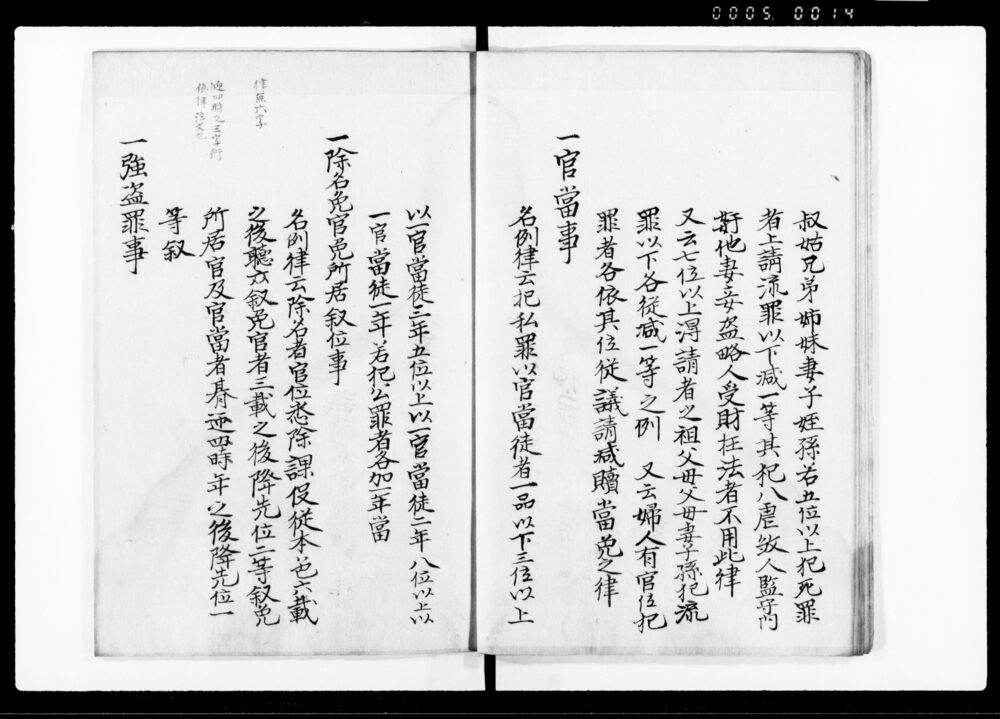 0005. 0014
叔姑兄弟姉妹妻子姪孫若五位以上犯死罪
者上請流罪以下减一等其犯八虐煞人監守内
奸他妻妾盗略人受財枉法者不用此律
又云七位以上淂請者之祖父母父母妻子孫犯流
罪以下各従减一等之例 又云婦人有官位犯
罪者各依其位従議請减贖當免之律
一官當事
名例律云犯私罪以官當徒者一品以下三位以上
以一官當徒三年五位以上以一官當徒二年八位以上以
一官當徒一年若犯公罪者各加一年當
一除名免官免所居叙位事
名例律云除名者官位悉除課役従本色六載
之後聴叙免官者三載之後降先位二等叙免
所居官及官當者朞年之後降先位一
等叙
一強盗罪事
律無六字
四時之三字行
依律注文也